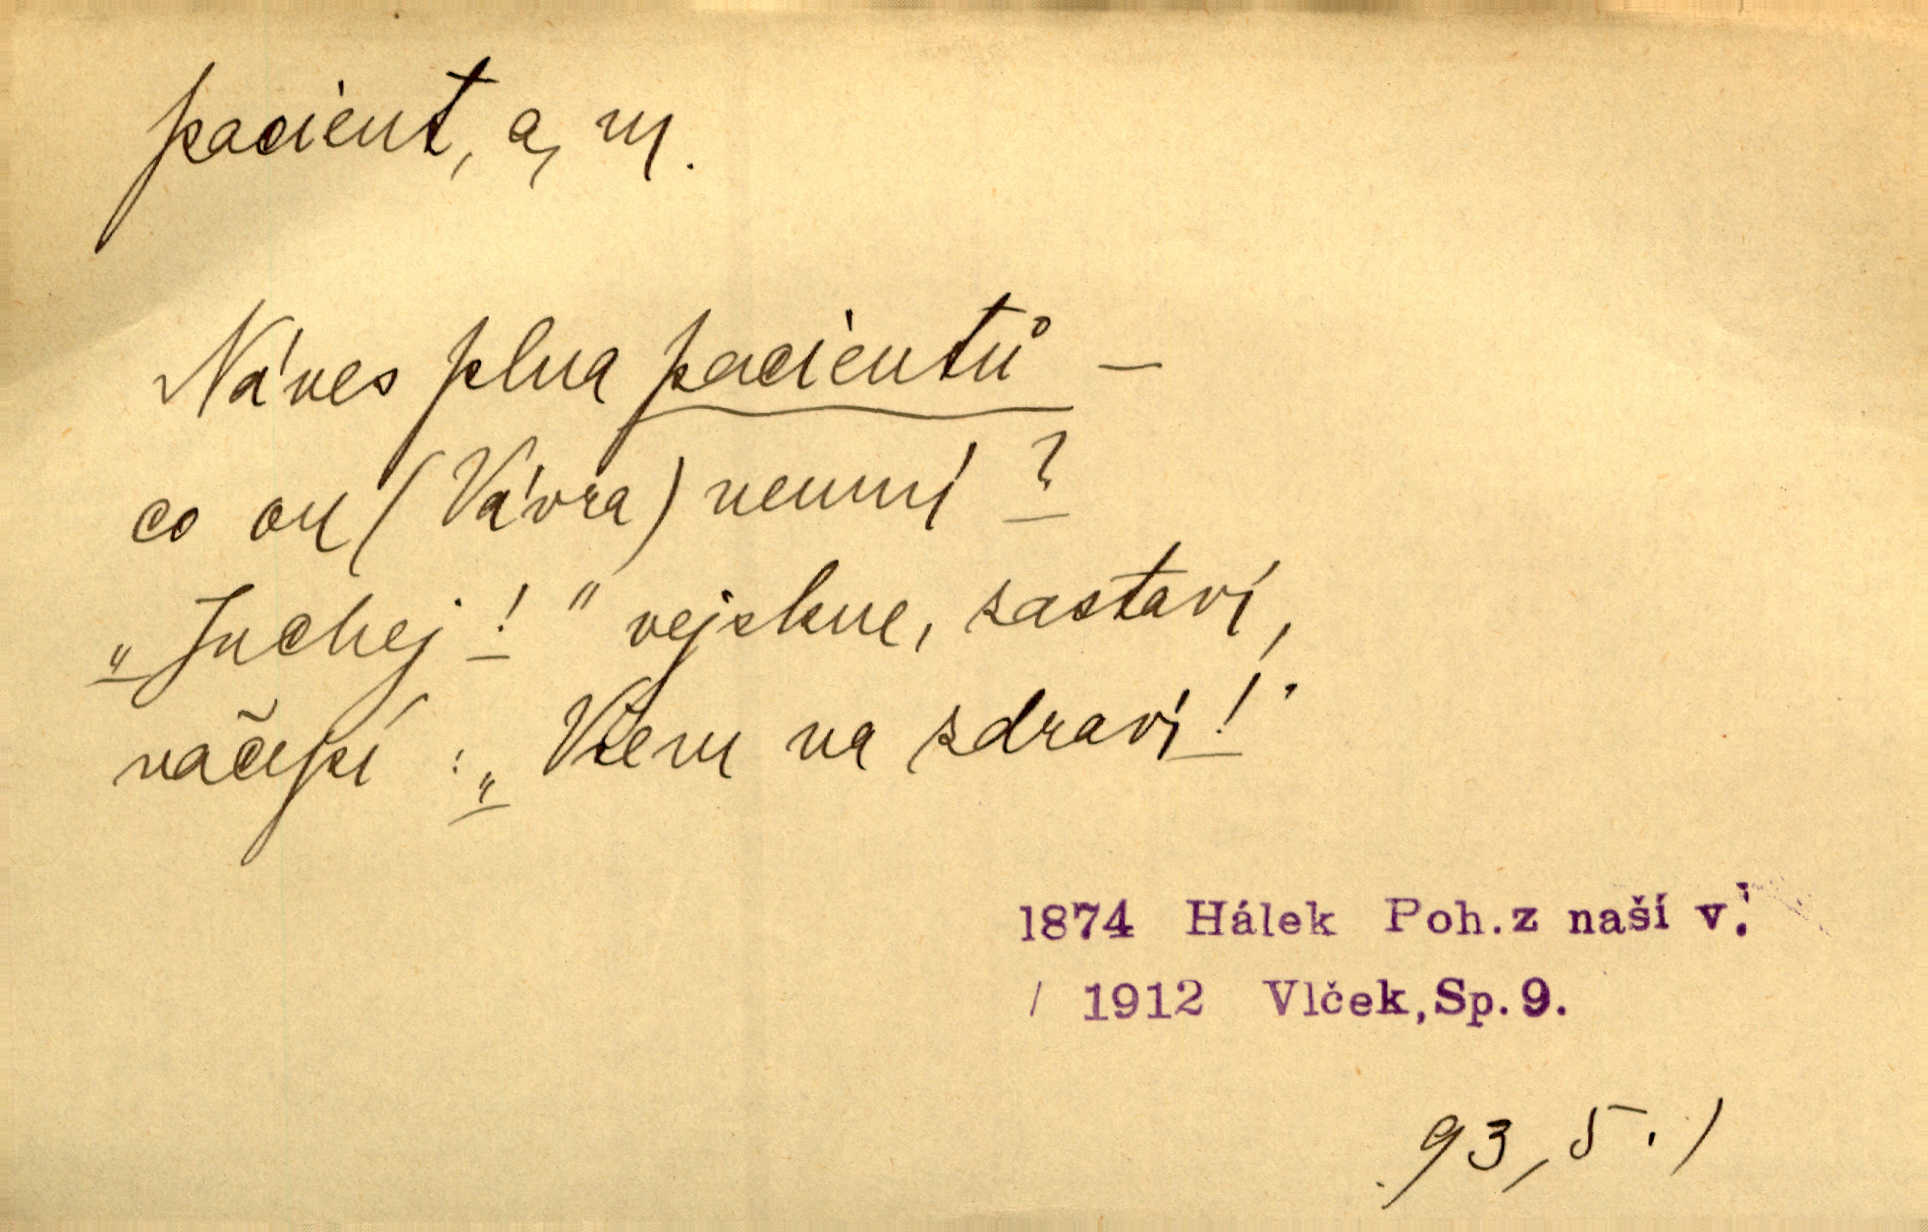 pacient, a, m.
Náves plna pacientů –
co on (Vávra) neumí?
„Juchej!" vejskne, zastaví,
načepí: „Všem na zdraví!"
1874 Hálek Poh. z naší v.
/ 1912 Vlček, Sp. 9.
93, 5.)